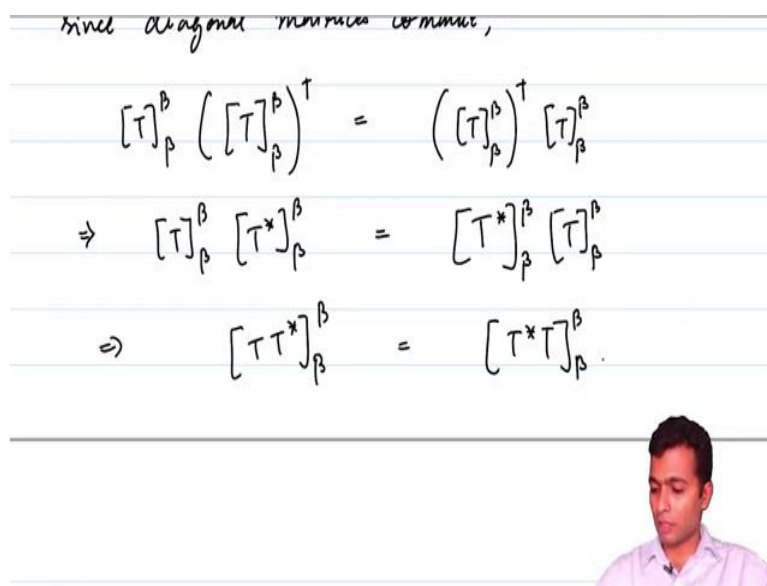 since diagonal matrices commute,
[T]_β^β ([T]_β^β)^† = ([T]_β^β)^† [T]_β^β
⇒ [T]_β^β [T*]_β^β = [T*]_β^β [T]_β^β
⇒ [TT*]_β^β = [T*T]_β^β.